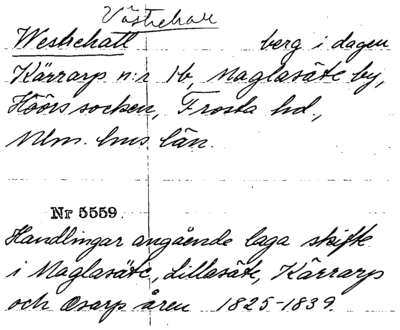 Västrehall
Westrehall berg i dagen
Kärrarp n:r 1b, Maglasäte by,
Höörs socken, Frosta hd.,
Mlm. hus län.
Nr 5559.
Handlingar angående laga skifte
i Maglasäte, Lillasäte, Kärrarp
och Osarp åren 1825-1839.